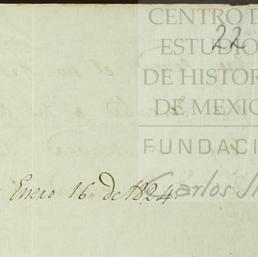 CENTRO D
ESTUDIO
DE HISTOR
DE MEXIC
FUNDACI
Carlos Sl
22
Enero 16,, de 1824.